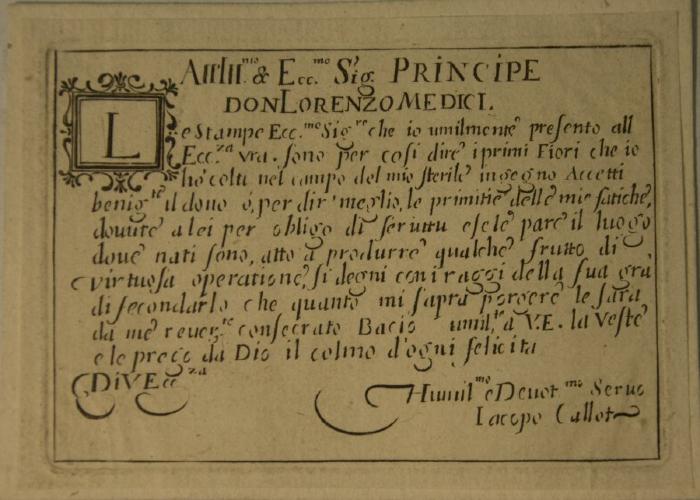 All Ill.mo & Ecc.mo Sig. PRINCIPE
DON LORENZO MEDICI.
Le Stampe Ecc.mo Sig.re che io umilmente presento all
Ecc.za vra. sono per cosi dire i primi Fiori che io
hò colti nel campo del mio sterile ingegno Accetti
benig.te il dono ò, per dir meglio, le primitie delle mie fatiche,
douute a lei per obligo di seruitu e se le pare il luogo
doue nati sono, atto à produrre qualche frutto di
virtuosa operatione, si degni con i raggi della sua gra.
di fecondarlo che quanto mi sapra porgere le sara
da me reuer.te consecrato Bacio umil.te a V.E. la Veste
e le prego da Dio il colmo d'ogni felicita
Di V Ecc.za
Humil.mo e Deuot.mo Seruo
Iacopo Callot